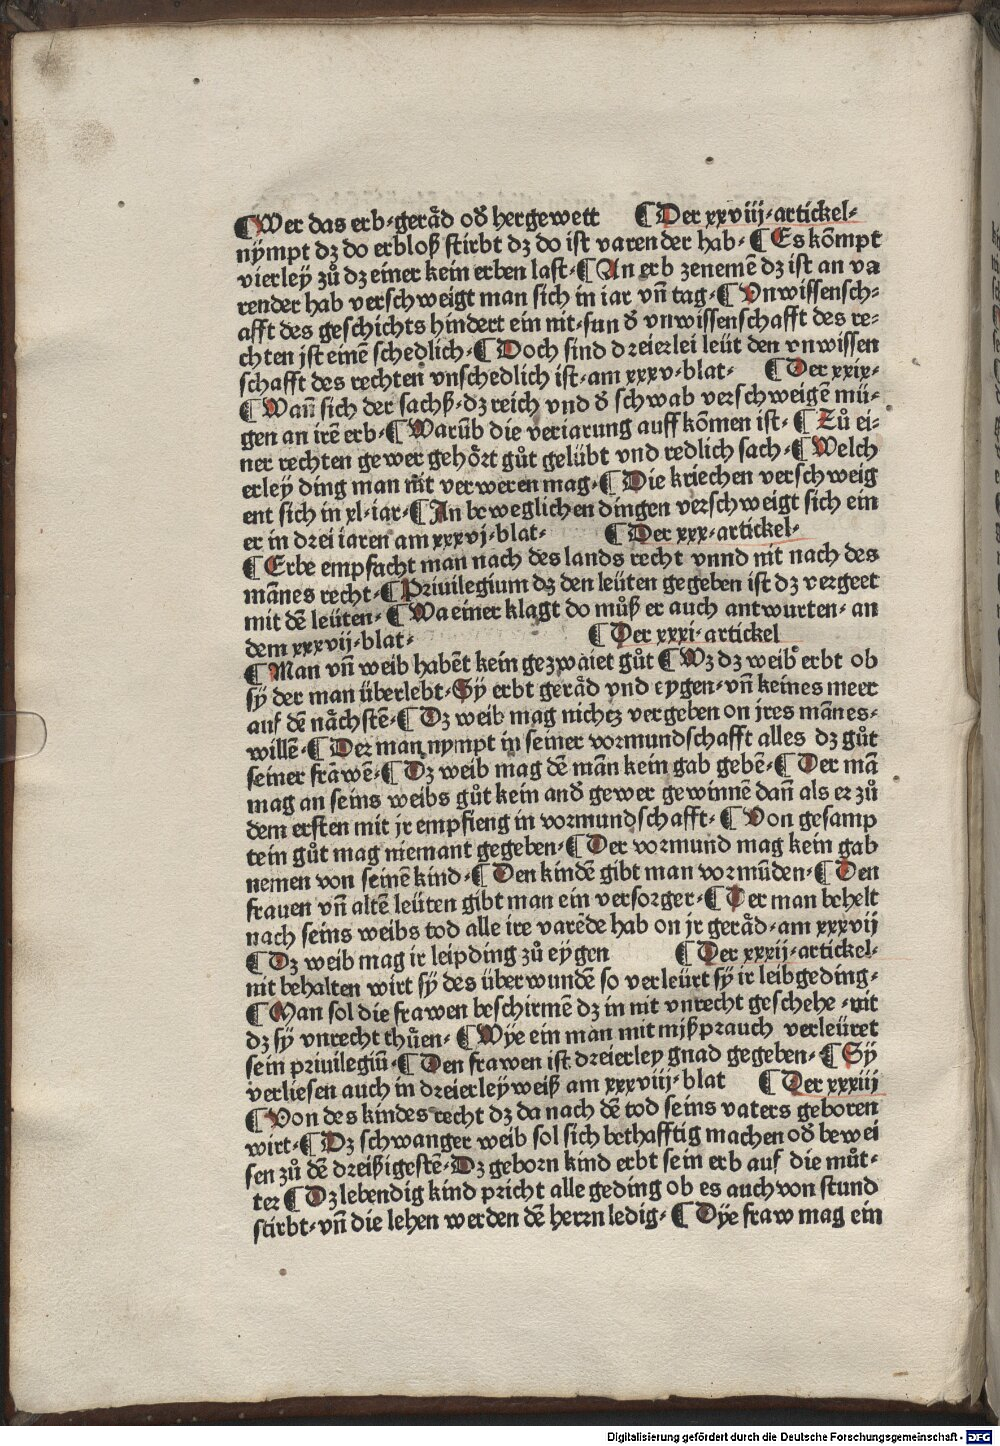 ¶Wer das erb⸗geräd oď hergewett ¶Der xxviij⸗artickel⸗
nympt dz do erbloß stirbt dz do ist varender hab⸗¶Es kōmpt
vierley zů dz einer kein erben last⸗¶An erb zenemē dz ist an va
render hab verschweigt man sich in iar vn̄ tag⸗¶Vnwissensch⸗
afft des geschichts hindert ein nit⸗sun ď vnwissenschafft des re⸗
chten jst einē schedlich⸗¶Doch sind dreierlei leüt den vnwissen
schafft des rechten vnschedlich ist⸗am xxxv⸗blat⸗ ¶Der xxix⸗
¶Wan̄ sich der sachß⸗dz reich vnd ď schwab verschweigē mü⸗
gen an irē erb⸗¶Warūb die veriarung auff kōmen ist⸗¶Zů ei⸗
ner rechten gewer gehört gůt gelübt vnd redlich sach⸗¶Welch
erley ding man nit verweren mag⸗¶Die kriechen verschweig
ent sich in xl⸗iar⸗¶In beweglichen dingen verschweigt sich ein
er in drei iaren am xxxvj⸗blat⸗ ¶Der xxx⸗artickel⸗
¶Erbe empfacht man nach des lands recht vnnd nit nach des
mānes recht⸗¶Priuilegium dz den leüten gegeben ist dz vergeet
mit dē leüten⸗¶Wa einer klagt do můß er auch antwurten⸗an
dem xxxvij⸗blat⸗ ¶Der xxxi⸗artickel
¶Man vn̄ weib habēt kein gezwaiet gůt ¶Wz dz weib erbt ob
sÿ der man überlebt⸗Sÿ erbt geräd vnd eygen⸗vn̄ keines meer
auf dē nächstē⸗¶Dz weib mag nichtz vergeben on jres mānes⸗
willē⸗¶Der man nympt in seiner vormundschafft alles dz gůt
seiner frawē⸗¶Dz weib mag dē mān kein gab gebē⸗¶Der mā
mag an seins weibs gůt kein anď gewer gewinnē dan̄ als er zů
dem ersten mit jr empfieng in vormundschafft⸗¶Von gesamp
tein gůt mag niemant gegeben⸗¶Der vormund mag kein gab
nemen von seinē kind⸗¶Den kindē gibt man vormūden⸗¶Den
frauen vn̄ altē leüten gibt man ein versorger⸗¶Der man behelt
nach seins weibs tod alle ire varēde hab on jr geräd⸗am xxxvij
¶Dz weib mag ir leipding zů eygen ¶Der xxxij⸗artickel⸗
nit behalten wirt sÿ des überwundē so verleürt sÿ ir leibgeding⸗
¶Man sol die frawen beschirmē dz in nit vnrecht geschehe⸗nit
dz sÿ vnrecht thüen⸗¶Wÿe ein man mit mjßprauch verleüret
sein priuilegiū⸗¶Den frawen ist dreierley gnad gegeben⸗¶Sÿ
verliesen auch in dreierley weiß am xxxviij⸗blat ¶Der xxxiij
¶Von des kindes recht dz da nach dē tod seins vaters geboren
wirt⸗¶Dz schwanger weib sol sich bethafftig machen oď bewei
sen zů dē dreißigestē⸗Dz geborn kind erbt sein erb auf die můt⸗
ter ¶Dz lebendig kind pricht alle geding ob es auch von stund
stirbt⸗vn̄ die lehen werden dē herrn ledig⸗¶Dÿe fraw mag ein
Digitalisierung gefördert durch die Deutsche Forschungsgemeinschaft - DFG